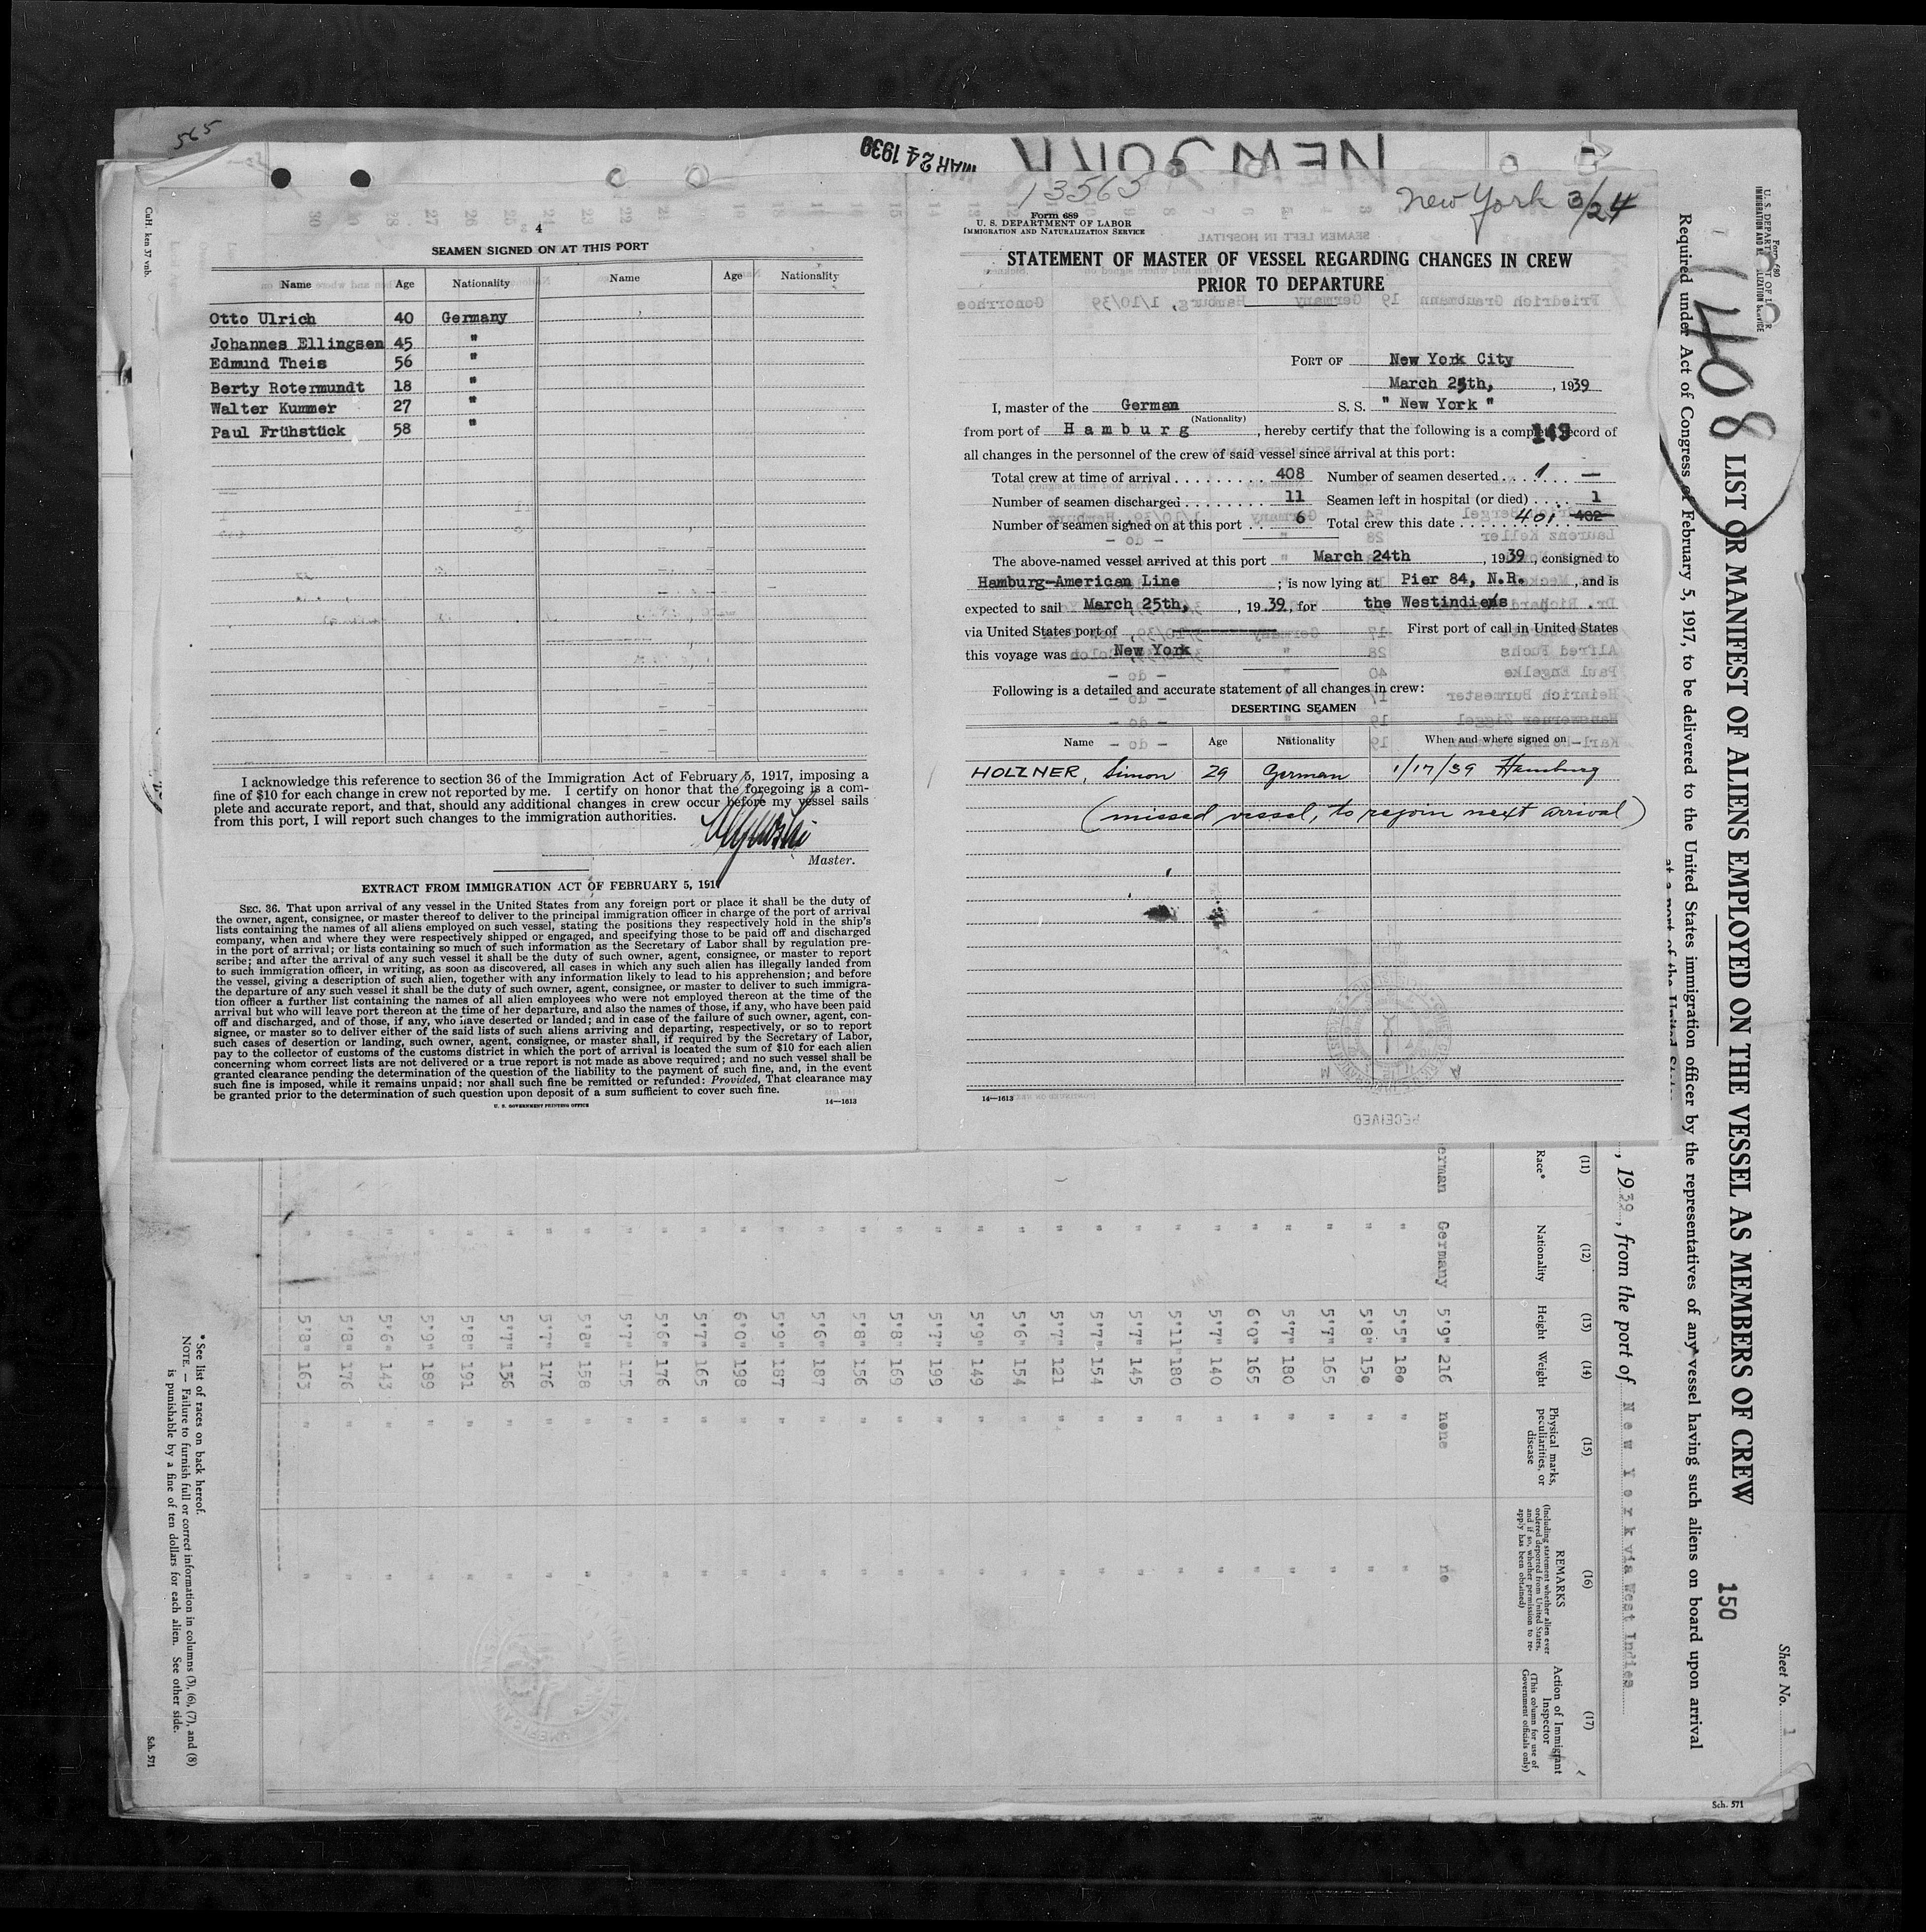 565
MAR 24 1939
NEW YORK
13565
New York 3/24
CuH. ken 37 vnb.
4
SEAMEN SIGNED ON AT THIS PORT
Name Age Nationality Name Age Nationality
Otto Ulrich 40 Germany
Johannes Ellingsen 45 "
Edmund Theis 56 "
Berty Rotermundt 18 "
Walter Kummer 27 "
Paul Frühstück 58 "
I acknowledge this reference to section 36 of the Immigration Act of February 5, 1917, imposing a
fine of $10 for each change in crew not reported by me. I certify on honor that the foregoing is a com-
plete and accurate report, and that, should any additional changes in crew occur before my vessel sails
from this port, I will report such changes to the immigration authorities.
Master.
EXTRACT FROM IMMIGRATION ACT OF FEBRUARY 5, 1917
SEC. 36. That upon arrival of any vessel in the United States from any foreign port or place it shall be the duty of
the owner, agent, consignee, or master thereof to deliver to the principal immigration officer in charge of the port of arrival
lists containing the names of all aliens employed on such vessel, stating the positions they respectively hold in the ship's
company, when and where they were respectively shipped or engaged, and specifying those to be paid off and discharged
in the port of arrival; or lists containing so much of such information as the Secretary of Labor shall by regulation pre-
scribe; and after the arrival of any such vessel it shall be the duty of such owner, agent, consignee, or master to report
to such immigration officer, in writing, as soon as discovered, all cases in which any such alien has illegally landed from
the vessel, giving a description of such alien, together with any information likely to lead to his apprehension; and before
the departure of any such vessel it shall be the duty of such owner, agent, consignee, or master to deliver to such immigra-
tion officer a further list containing the names of all alien employees who were not employed thereon at the time of the
arrival but who will leave port thereon at the time of her departure, and also the names of those, if any, who have been paid
off and discharged, and of those, if any, who have deserted or landed; and in case of the failure of such owner, agent, con-
signee, or master so to deliver either of the said lists of such aliens arriving and departing, respectively, or so to report
such cases of desertion or landing, such owner, agent, consignee, or master shall, if required by the Secretary of Labor,
pay to the collector of customs of the customs district in which the port of arrival is located the sum of $10 for each alien
concerning whom correct lists are not delivered or a true report is not made as above required; and no such vessel shall be
granted clearance pending the determination of the question of the liability to the payment of such fine, and, in the event
such fine is imposed, while it remains unpaid; nor shall such fine be remitted or refunded: Provided, That clearance may
be granted prior to the determination of such question upon deposit of a sum sufficient to cover such fine.
U. S. GOVERNMENT PRINTING OFFICE 14—1613
Form 689
U. S. DEPARTMENT OF LABOR
IMMIGRATION AND NATURALIZATION SERVICE
STATEMENT OF MASTER OF VESSEL REGARDING CHANGES IN CREW
PRIOR TO DEPARTURE
PORT OF New York City
March 25th, , 1939
I, master of the German S. S. " New York "
(Nationality)
from port of Hamburg , hereby certify that the following is a complete record of
149
all changes in the personnel of the crew of said vessel since arrival at this port:
Total crew at time of arrival 408 Number of seamen deserted 1 —
Number of seamen discharged 11 Seamen left in hospital (or died) 1
Number of seamen signed on at this port 6 Total crew this date 401 402
The above-named vessel arrived at this port March 24th , 1939, consigned to
Hamburg-American Line ; is now lying at Pier 84, N.R. , and is
expected to sail March 25th, , 1939, for the Westindies
via United States port of ---------- First port of call in United States
this voyage was New York
Following is a detailed and accurate statement of all changes in crew:
DESERTING SEAMEN
Name Age Nationality When and where signed on
HOLZNER, Simon 29 German 1/17/39 Hamburg
(missed vessel, to rejoin next arrival)
14—1613
RECEIVED
Form 680
U. S. DEPARTMENT OF LABOR
IMMIGRATION AND NATURALIZATION SERVICE
408
LIST OR MANIFEST OF ALIENS EMPLOYED ON THE VESSEL AS MEMBERS OF CREW
150
Sheet No. 1
Required under Act of Congress of February 5, 1917, to be delivered to the United States immigration officer by the representatives of any vessel having such aliens on board upon arrival
at a port of the United States
, 1939, from the port of New York via West Indies
(11) (12) (13) (14) (15) (16) (17)
Race* Nationality Height Weight Physical marks, peculiarities, or disease
REMARKS
(Including statement whether alien ever ordered deported from United States, and if so, whether permission to re-apply has been obtained)
Action of Immigrant Inspector
(This column for use of Government officials only)
erman Germany 5'9" 216 none no
" 5'5" 180 " "
" 5'8" 150 " "
" 5'7" 165 " "
" 5'7" 180 " "
" 6'0" 165 " "
" 5'7" 140 " "
" 5'11" 180 " "
" 5'7" 145 " "
" 5'7" 154 " "
" 5'7" 121 " "
" 5'6" 154 " "
" 5'9" 149 " "
" 5'7" 199 " "
" 5'8" 169 " "
" 5'8" 156 " "
" 5'6" 187 " "
" 5'9" 187 " "
" 6'0" 198 " "
" 5'7" 165 " "
" 5'6" 176 " "
" 5'7" 175 " "
" 5'8" 158 " "
" 5'7" 176 " "
" 5'7" 156 " "
" 5'8" 191 " "
" 5'9" 189 " "
" 5'6" 143 " "
" 5'8" 176 " "
" 5'8" 163 " "
* See list of races on back hereof.
NOTE. — Failure to furnish full or correct information in columns (3), (6), (7), and (8)
is punishable by a fine of ten dollars for each alien. See other side.
Sch. 571
Sch. 571